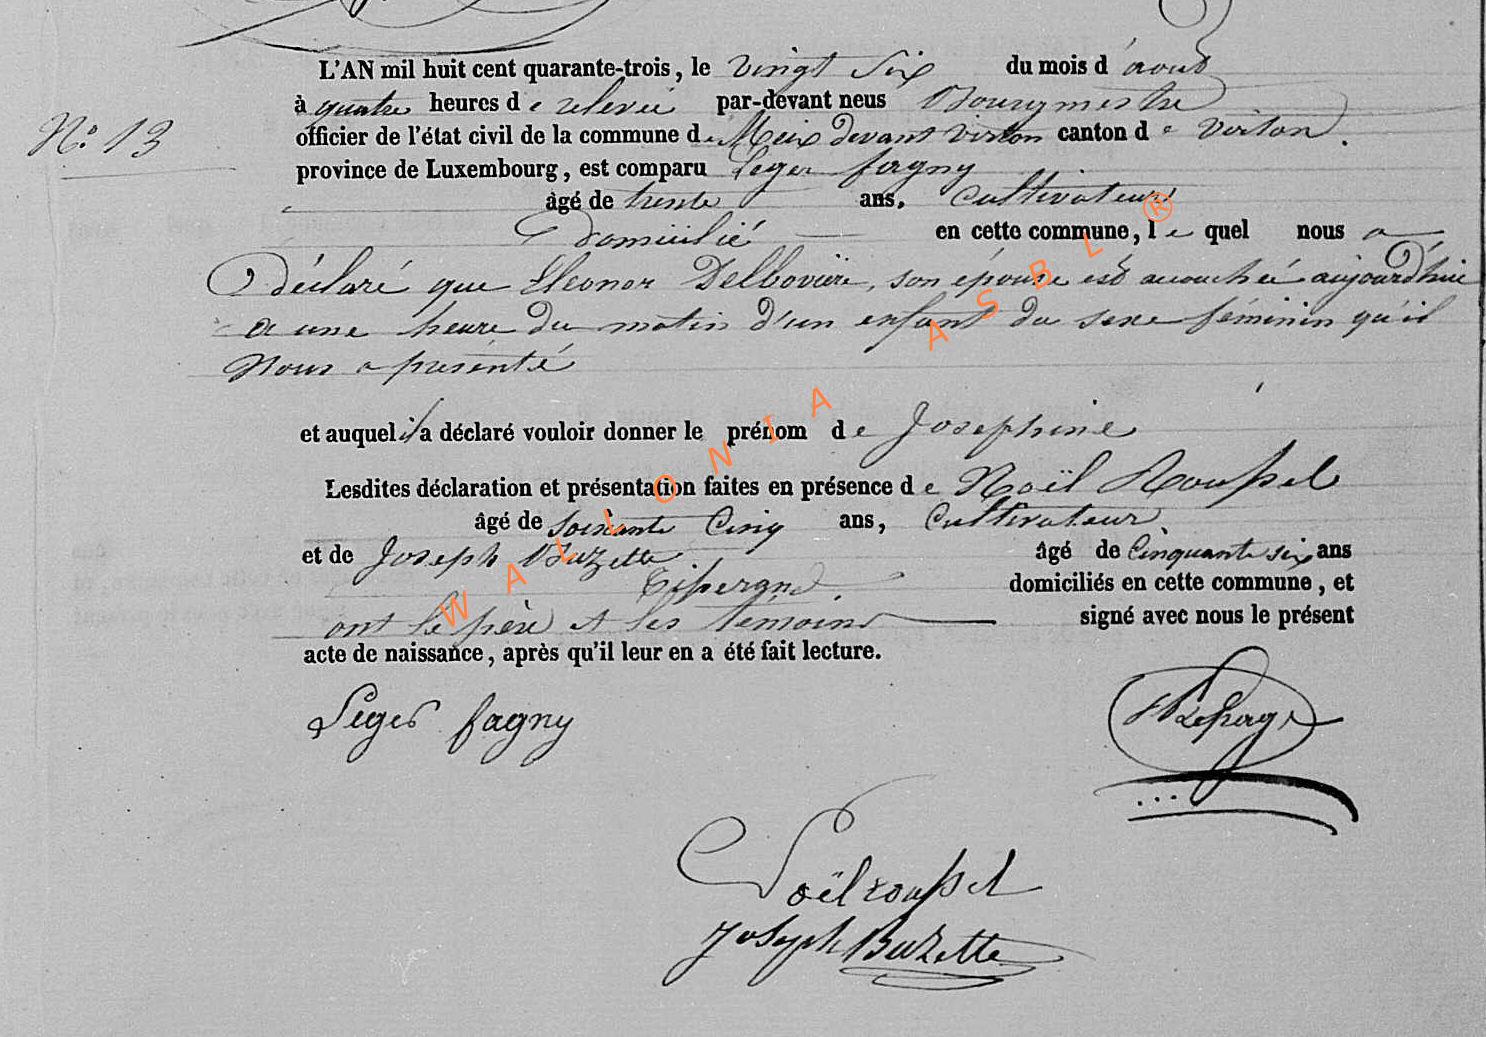 L'AN mil huit cent quarante-trois, le vingt six du mois d'aout
N.º 13
à quatre heures de relevée par-devant nous Bourgmestre
officier de l'état civil de la commune de Meix devant virton canton de virton.
province de Luxembourg, est comparu Leger fagny
âgé de trente ans, Cultivateur
Domicilié en cette commune, lequel nous a
Déclaré que Eleonor Delbovière, son épouse est accouchée aujourd'huie
a une heure du matin d'un enfant du sexe féminin qu'il
Nous a présenté
et auquel il a déclaré vouloir donner le prénom de Josephine
Lesdites déclaration et présentation faites en présence de Noël Roussel
âgé de soixante Cinq ans, Cultivateur,
et de Joseph Buzette âgé de Cinquante six ans
domiciliés en cette commune, et
ont le père et les témoins signé avec nous le présent
acte de naissance, après qu'il leur en a été fait lecture.
Léger fagny
Noël roussel
Joseph Buzette
WALLONIA ASBL ®